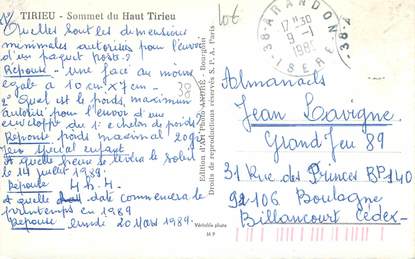 TIRIEU - Sommet du Haut Tirieu
1° Quelles sont les dimensions
minimales autorisées pour l'envoi
d'un paquet poste ?
Réponse - une face au moins
égale à 10 cm x 7 cm -
2° Quel est le poids maximum
autorisé pour l'envoi d'une
enveloppe du 1er échelon de poids ?
Réponse poids maximal 20g
A quelle heure se lève le soleil
le 14 juillet 1989.
Réponse 4 h. 4 -
A quelle date commencera le
printemps en 1989
Réponse lundi 20 Mars 1989.
lot
38
Edition d'Art Photo ANDRÉ - Bourgoin
Droits de reproductions réservés S.P.A. Paris
Véritable photo
38 - ARANDON
17 H 30
9 - 1
1989
ISERE
Almanachs
Jean Lavigne
Grand Jeu 89
31 Rue des Princes BP 140
92106 Boulogne
Billancourt Cedex -